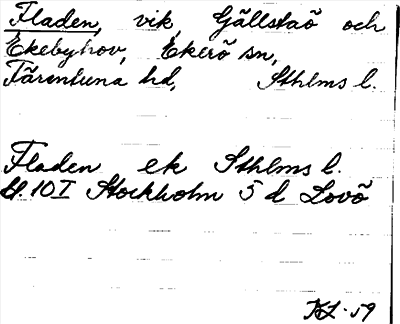 Fladen, vik, Gällstaö och
Ekebyhov, Ekerö sn,
Färentuna hd, Sthlms l.
Fladen ek Sthlms l.
Bl. 10 I Stockholm 5 d Lovö
KL. 59